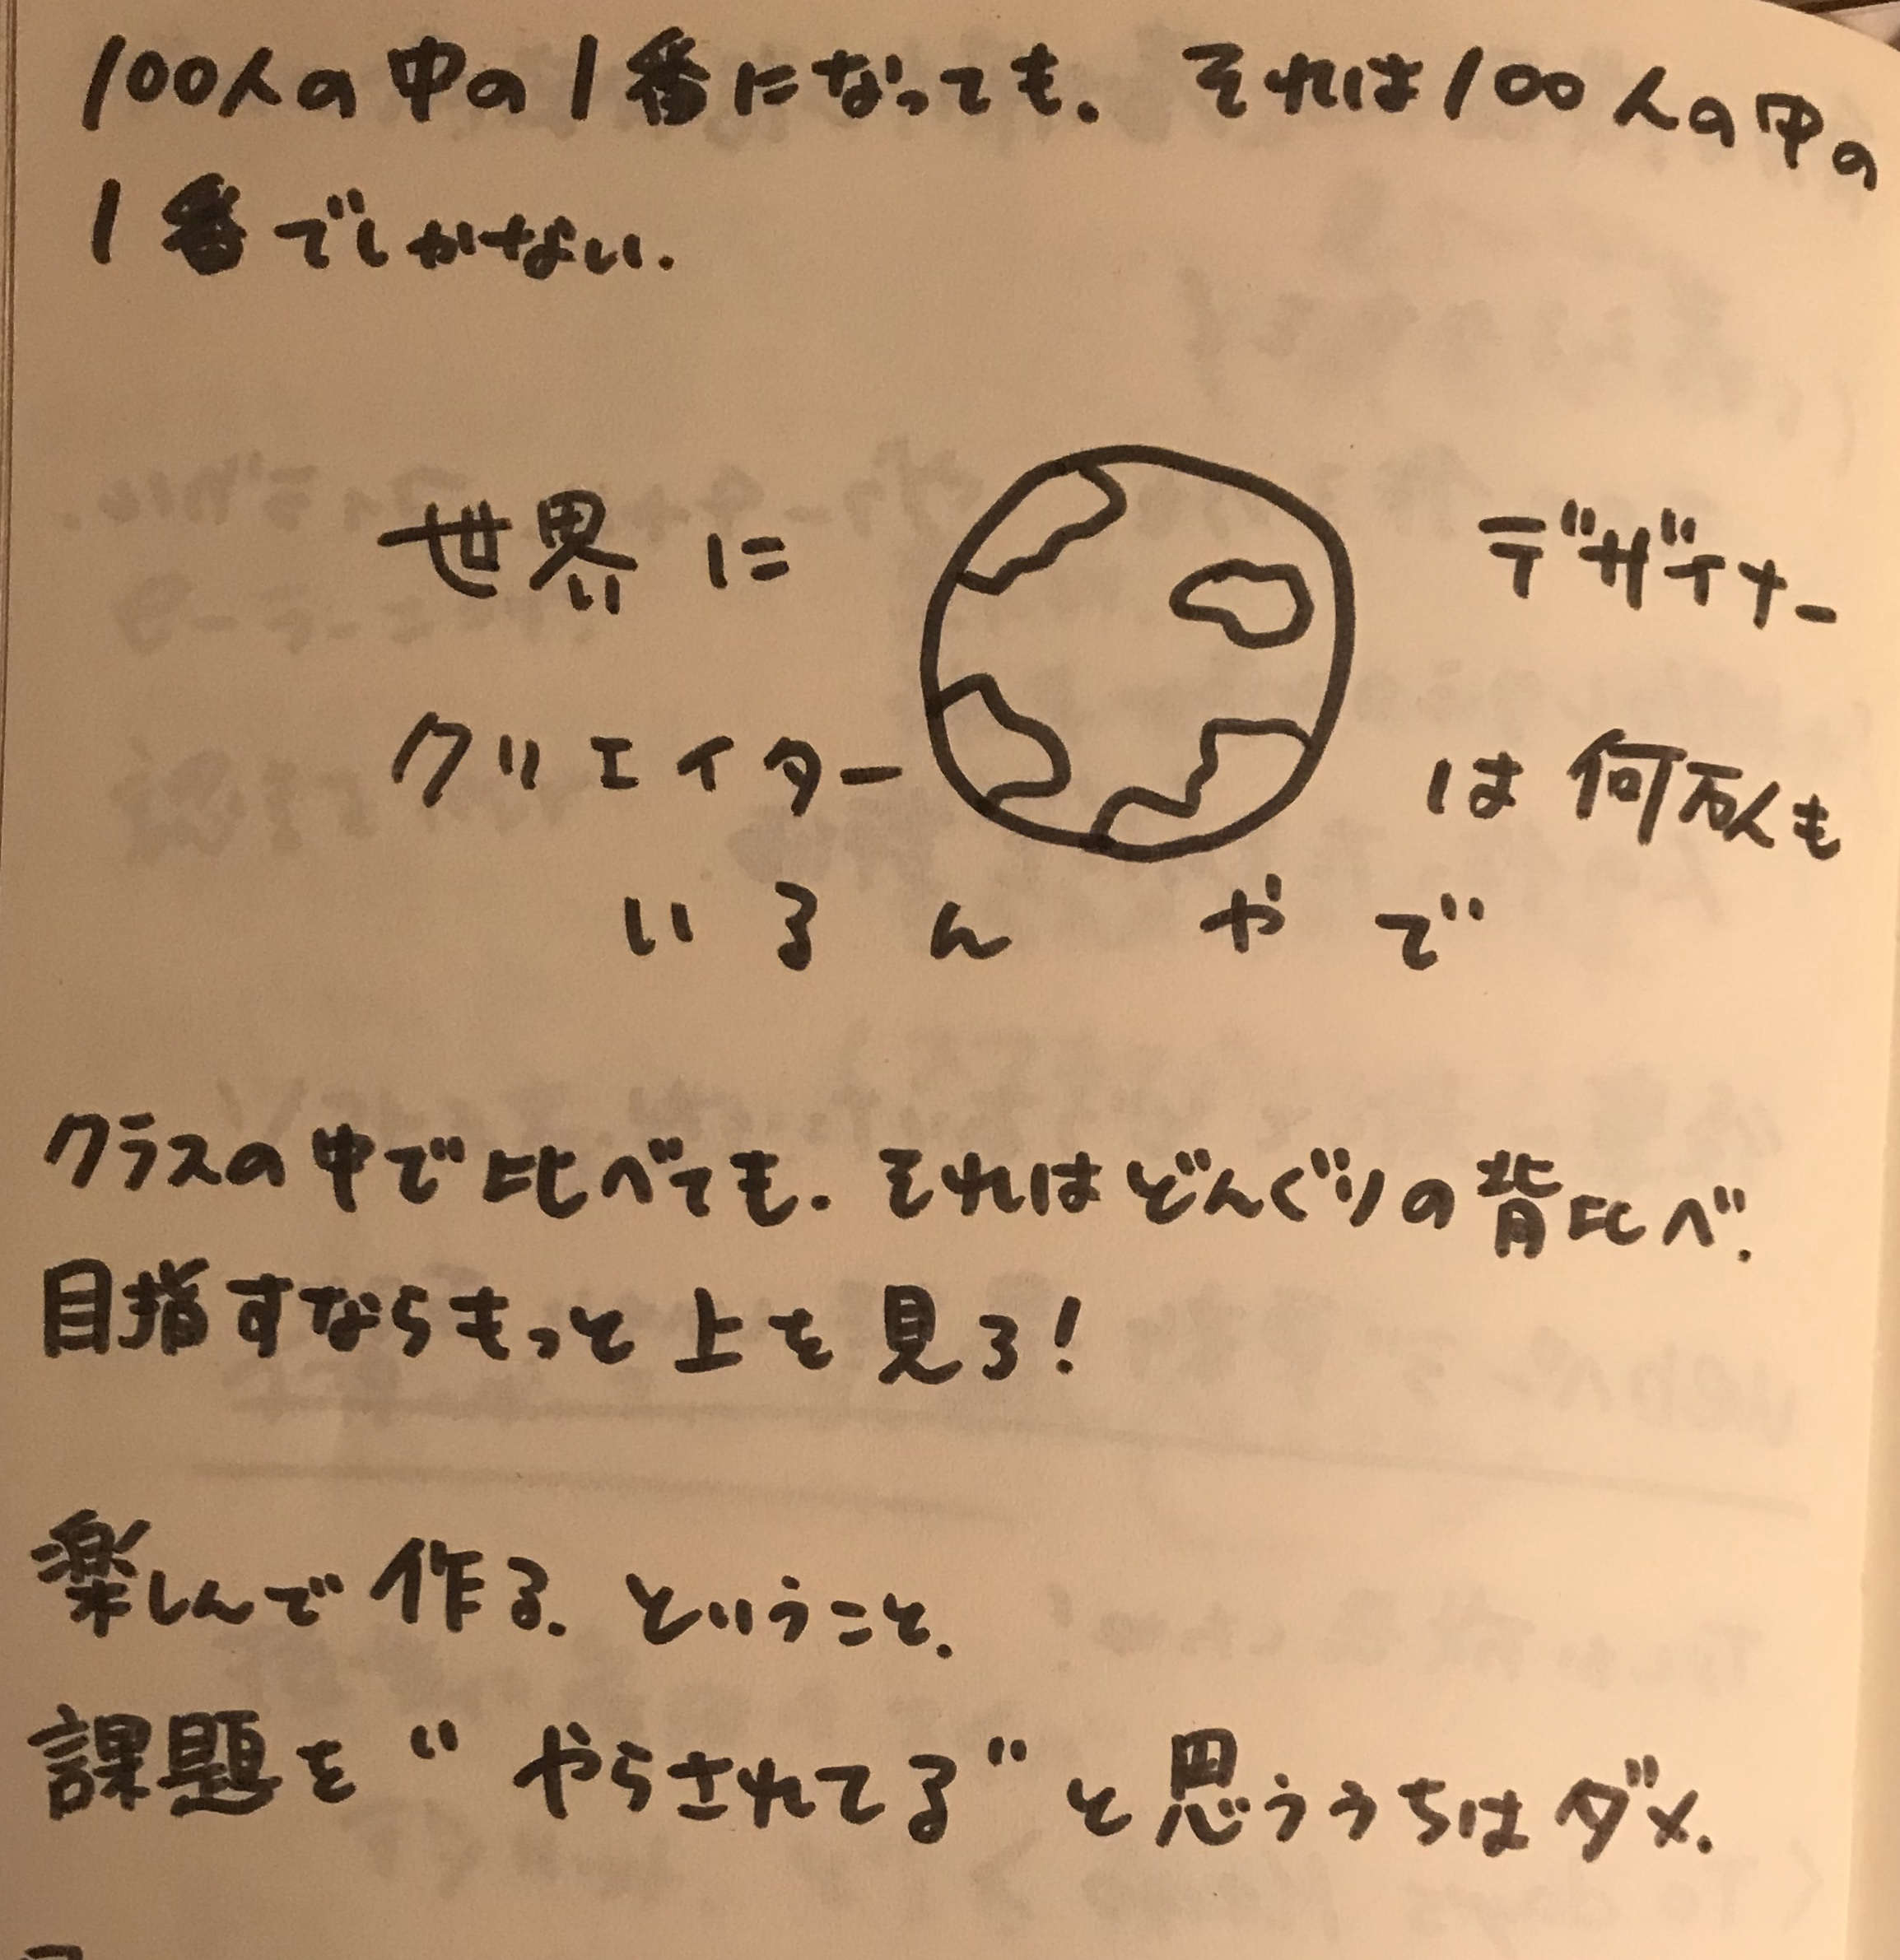 100人の中の1番になっても. それは100人の中の
1番でしかない.
世界に デザイナー
クリエイター は何万人も
いるんやで
クラスの中で比べても. それはどんぐりの背比べ.
目指すならもっと上を見ろ!
楽しんで作る. ということ.
課題を“やらされてる”と思ううちはダメ.